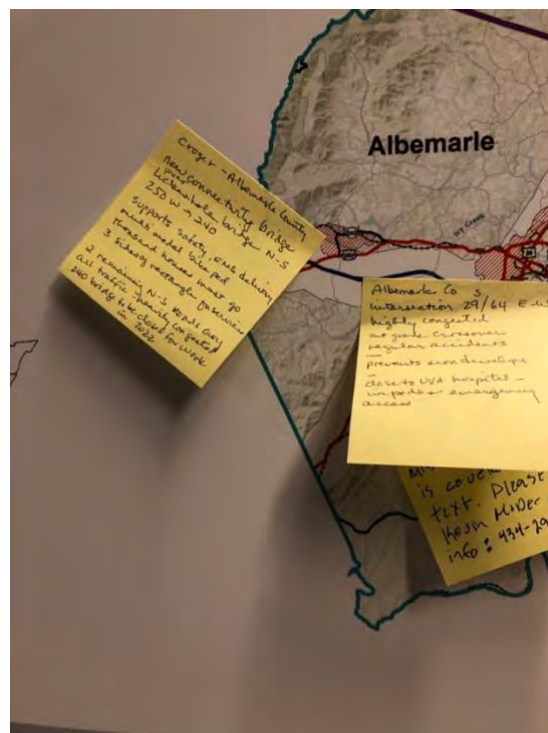 Albemarle
Ivy Creek
Crozet - Albemarle County
new connectivity bridge
Lickinghole bridge N-S
250 W → 240
supports safety, EMS delivery
multi modal bike ped
thousand houses must go
3 sideways rectangle for service
2 remaining N-S roads carry
all traffic - heavily congested
240 bridge to be closed for work
in 2022
Albemarle Co
intersection 29/64 E-W
highly congested
at grade crossover
regular accidents
prevents econ
close to UVA hospital -
emergency
access
is
text. Please
Kevin McDer
info: 434-29